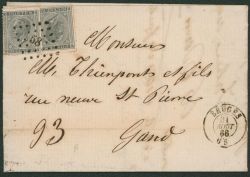 Monsieur
Mr. Thienpont et fils
rue neuve St Pierre
93
Gand
BRUGES
21
66